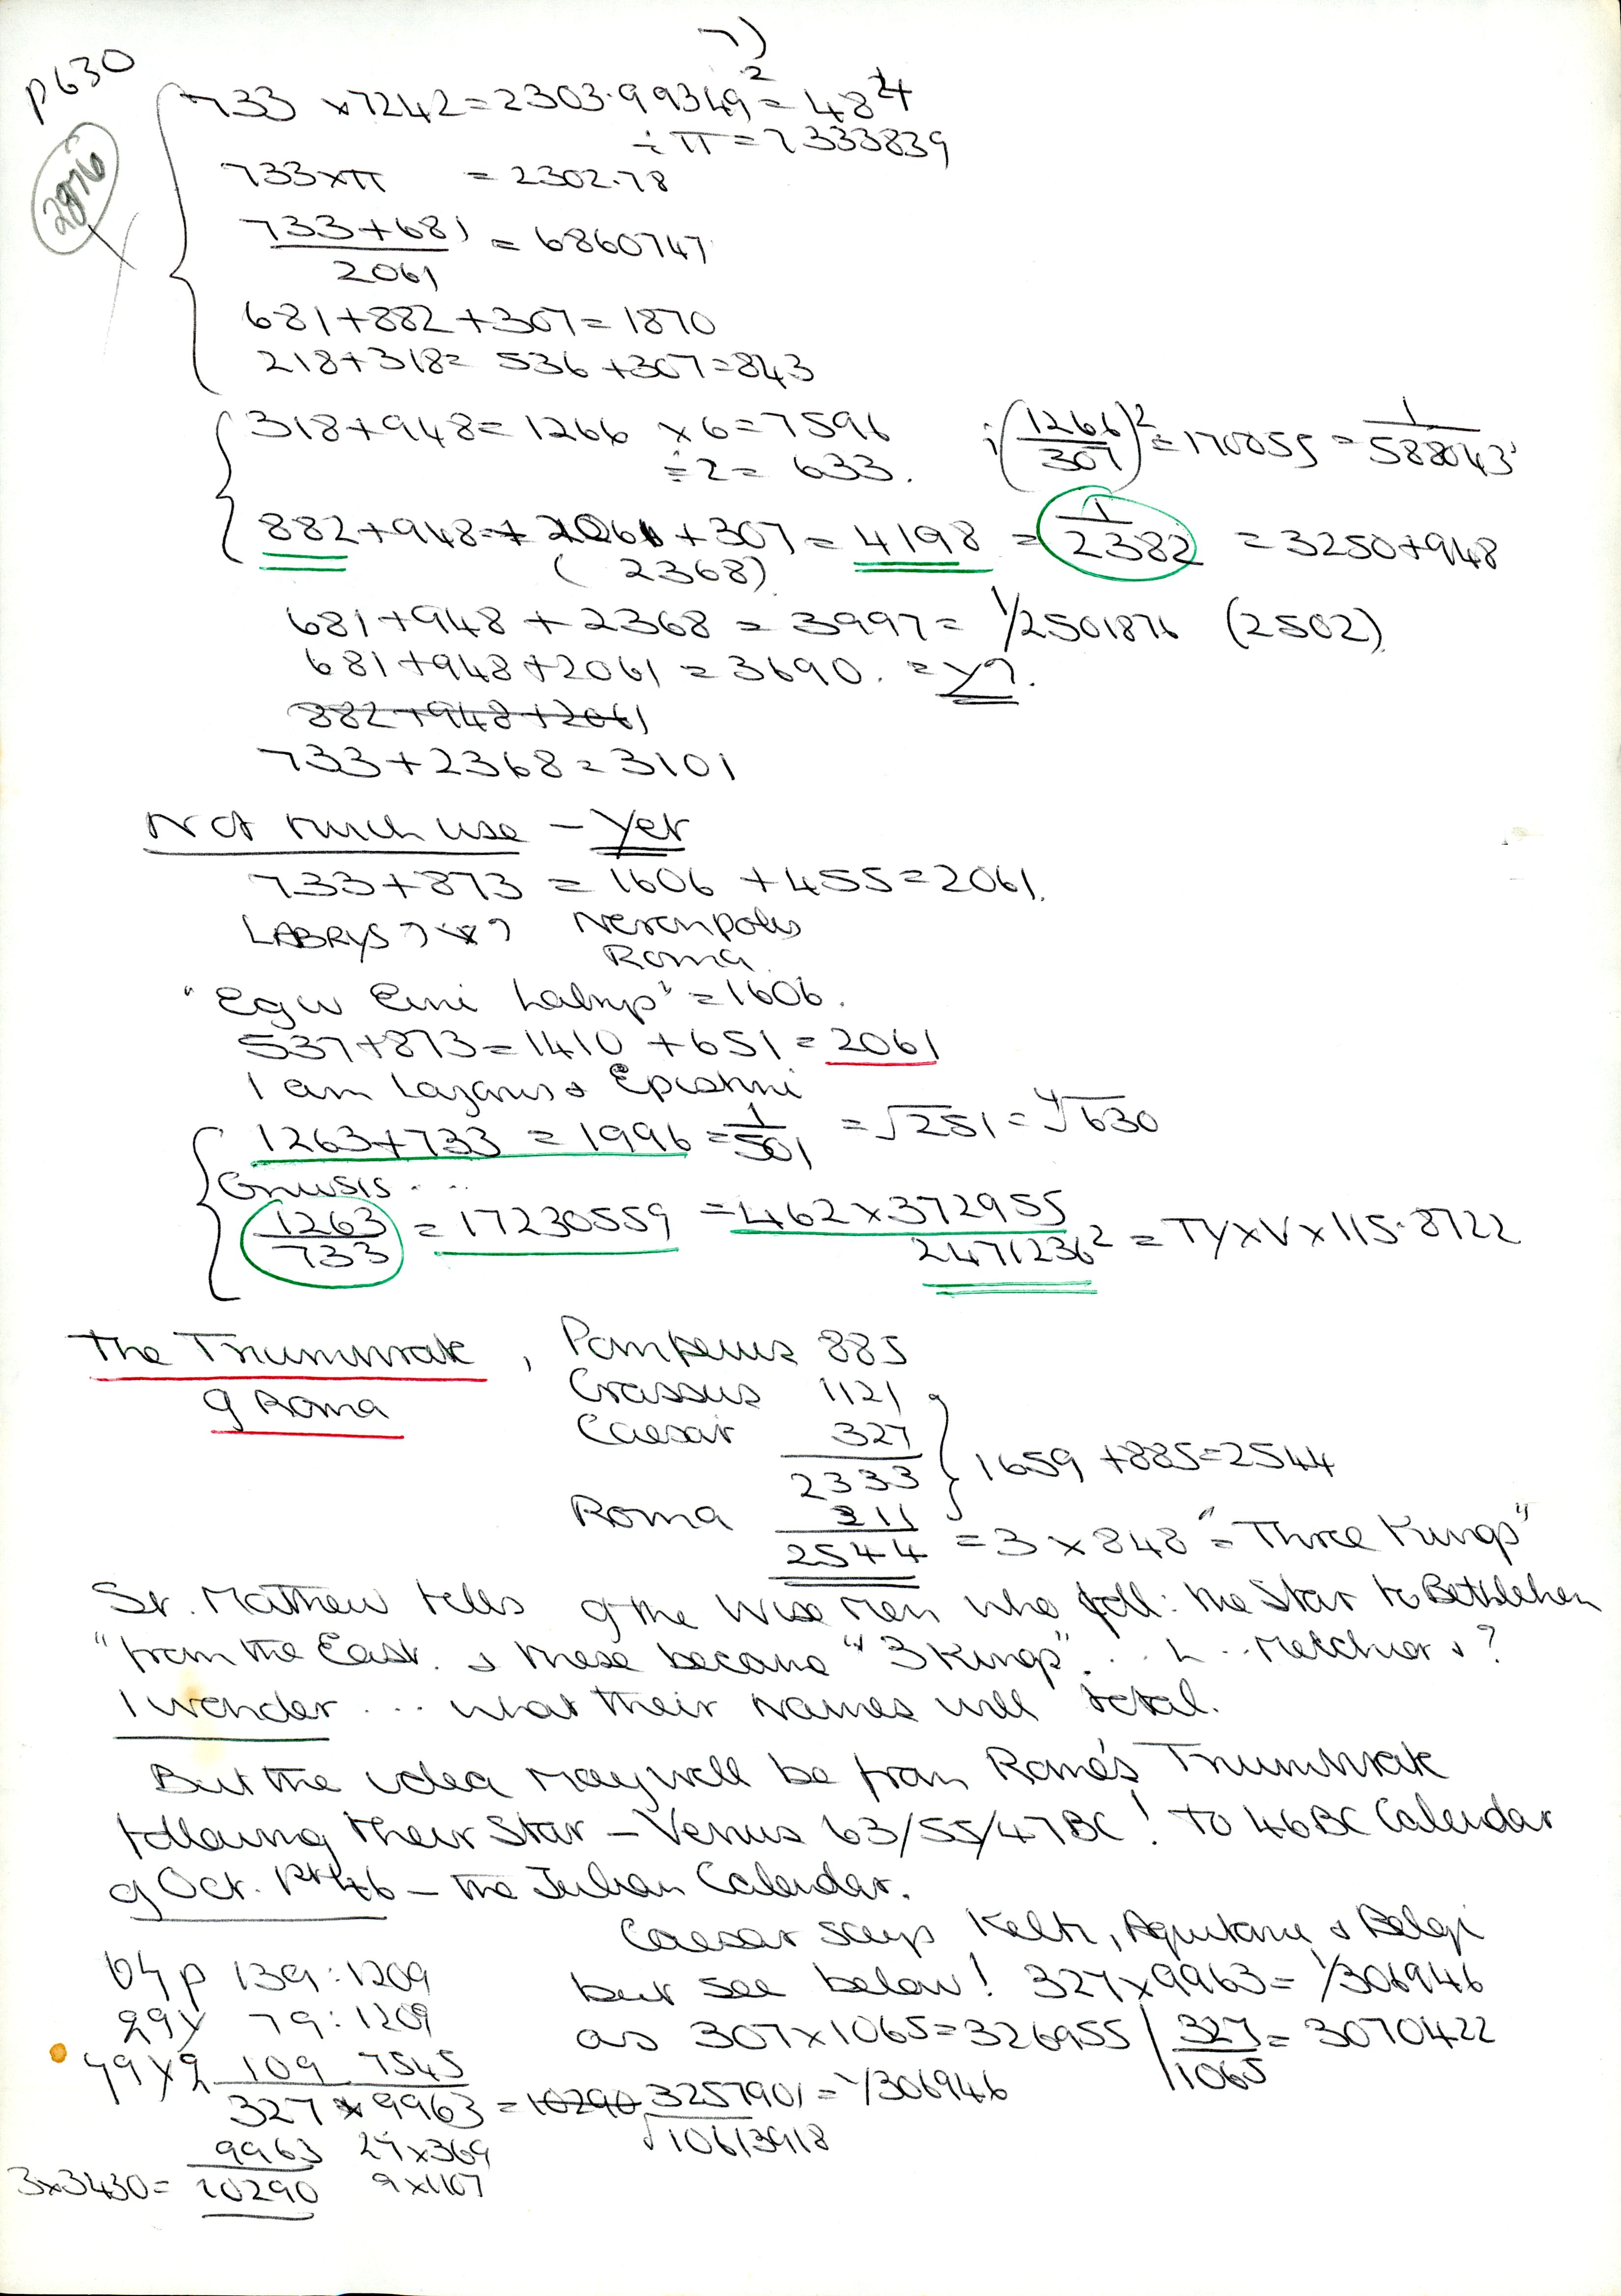 7)
p630
2976
733 x 7242 = 2303.99349² = 48⁴
÷ π = 7333839
733 x π = 2302.78
733+681 / 2061 = 6860747
681+882+307=1870
218+318= 536 +307=843
318+948= 1266 x 6=7596
÷2= 633.
(1266/307)² = 170055 = 1/588043
882+948+2061+307 = 4198 = 1/2382 = 3250+948
(2368)
681+948+2368 = 3997 = 1/2501876 (2502)
681+948+2061 = 3690. = y?.
882+948+2061
733+2368=3101
Not much use – Yet
733+873 = 1606 +455=2061.
LABRYS Neronpolis
Roma
"Egw Eimi Labrys" = 1606.
537+873=1410 +651=2061
I am Lazarus & Epistimi
1263+733 = 1996 = 1/501 = √251 = ⁴√630
Gnwsis ...
1263/733 = 17230559 = 462x372955 / 2471236² = TyxVx115.8722
The Triumvirate, Pompeius 885
of Roma
Crassus 1121
Caesar 327
2333
1659 +885=2544
Roma 211
2544 = 3 x 848 = "Three Kings"
St. Matthew tells of the Wise Men who foll: the Star to Bethlehem
"from the East. & these became "3 Kings". .. .. Melchior & ?
I wonder ... what their names will total.
But the idea may well be from Rome's Triumvirate
following their Star – Venus 63/55/47BC! to 46BC Calendar
of Oct. 1st 46 – the Julian Calendar.
Caesar says Kelti, Aquitani & Belgi
but see below! 327x9963= 1/306946
as 307x1065=326955 | 327/1065 = 3070422
04p 139:1209
29y 79:1209
99y2 109 7545
327 x 9963 = 10290 3257901 = 1/306946
√10613918
9963 27x369
3x3430= 10290 9x1107